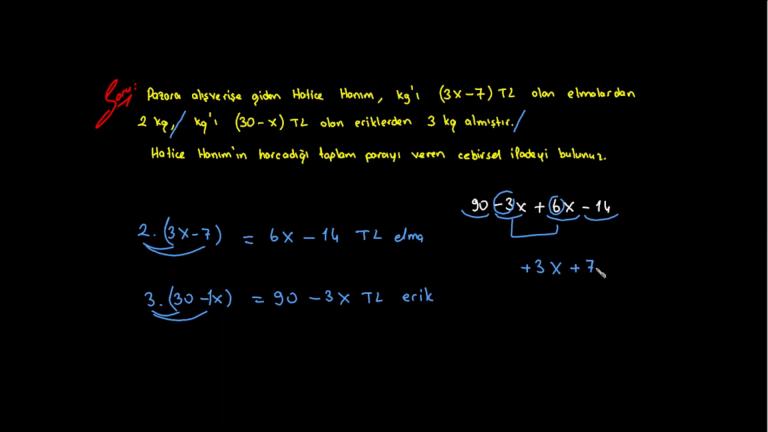 Soru: Pazara alışverişe giden Hatice Hanım, kg'ı (3x-7) TL olan elmalardan
2 kg, kg'ı (30-x) TL olan eriklerden 3 kg almıştır.
Hatice Hanım'ın harcadığı toplam parayı veren cebirsel ifadeyi bulunuz.
90 - 3x + 6x - 14
2. (3x-7) = 6x - 14 TL elma
+3x + 7
3. (30-1x) = 90 - 3x TL erik